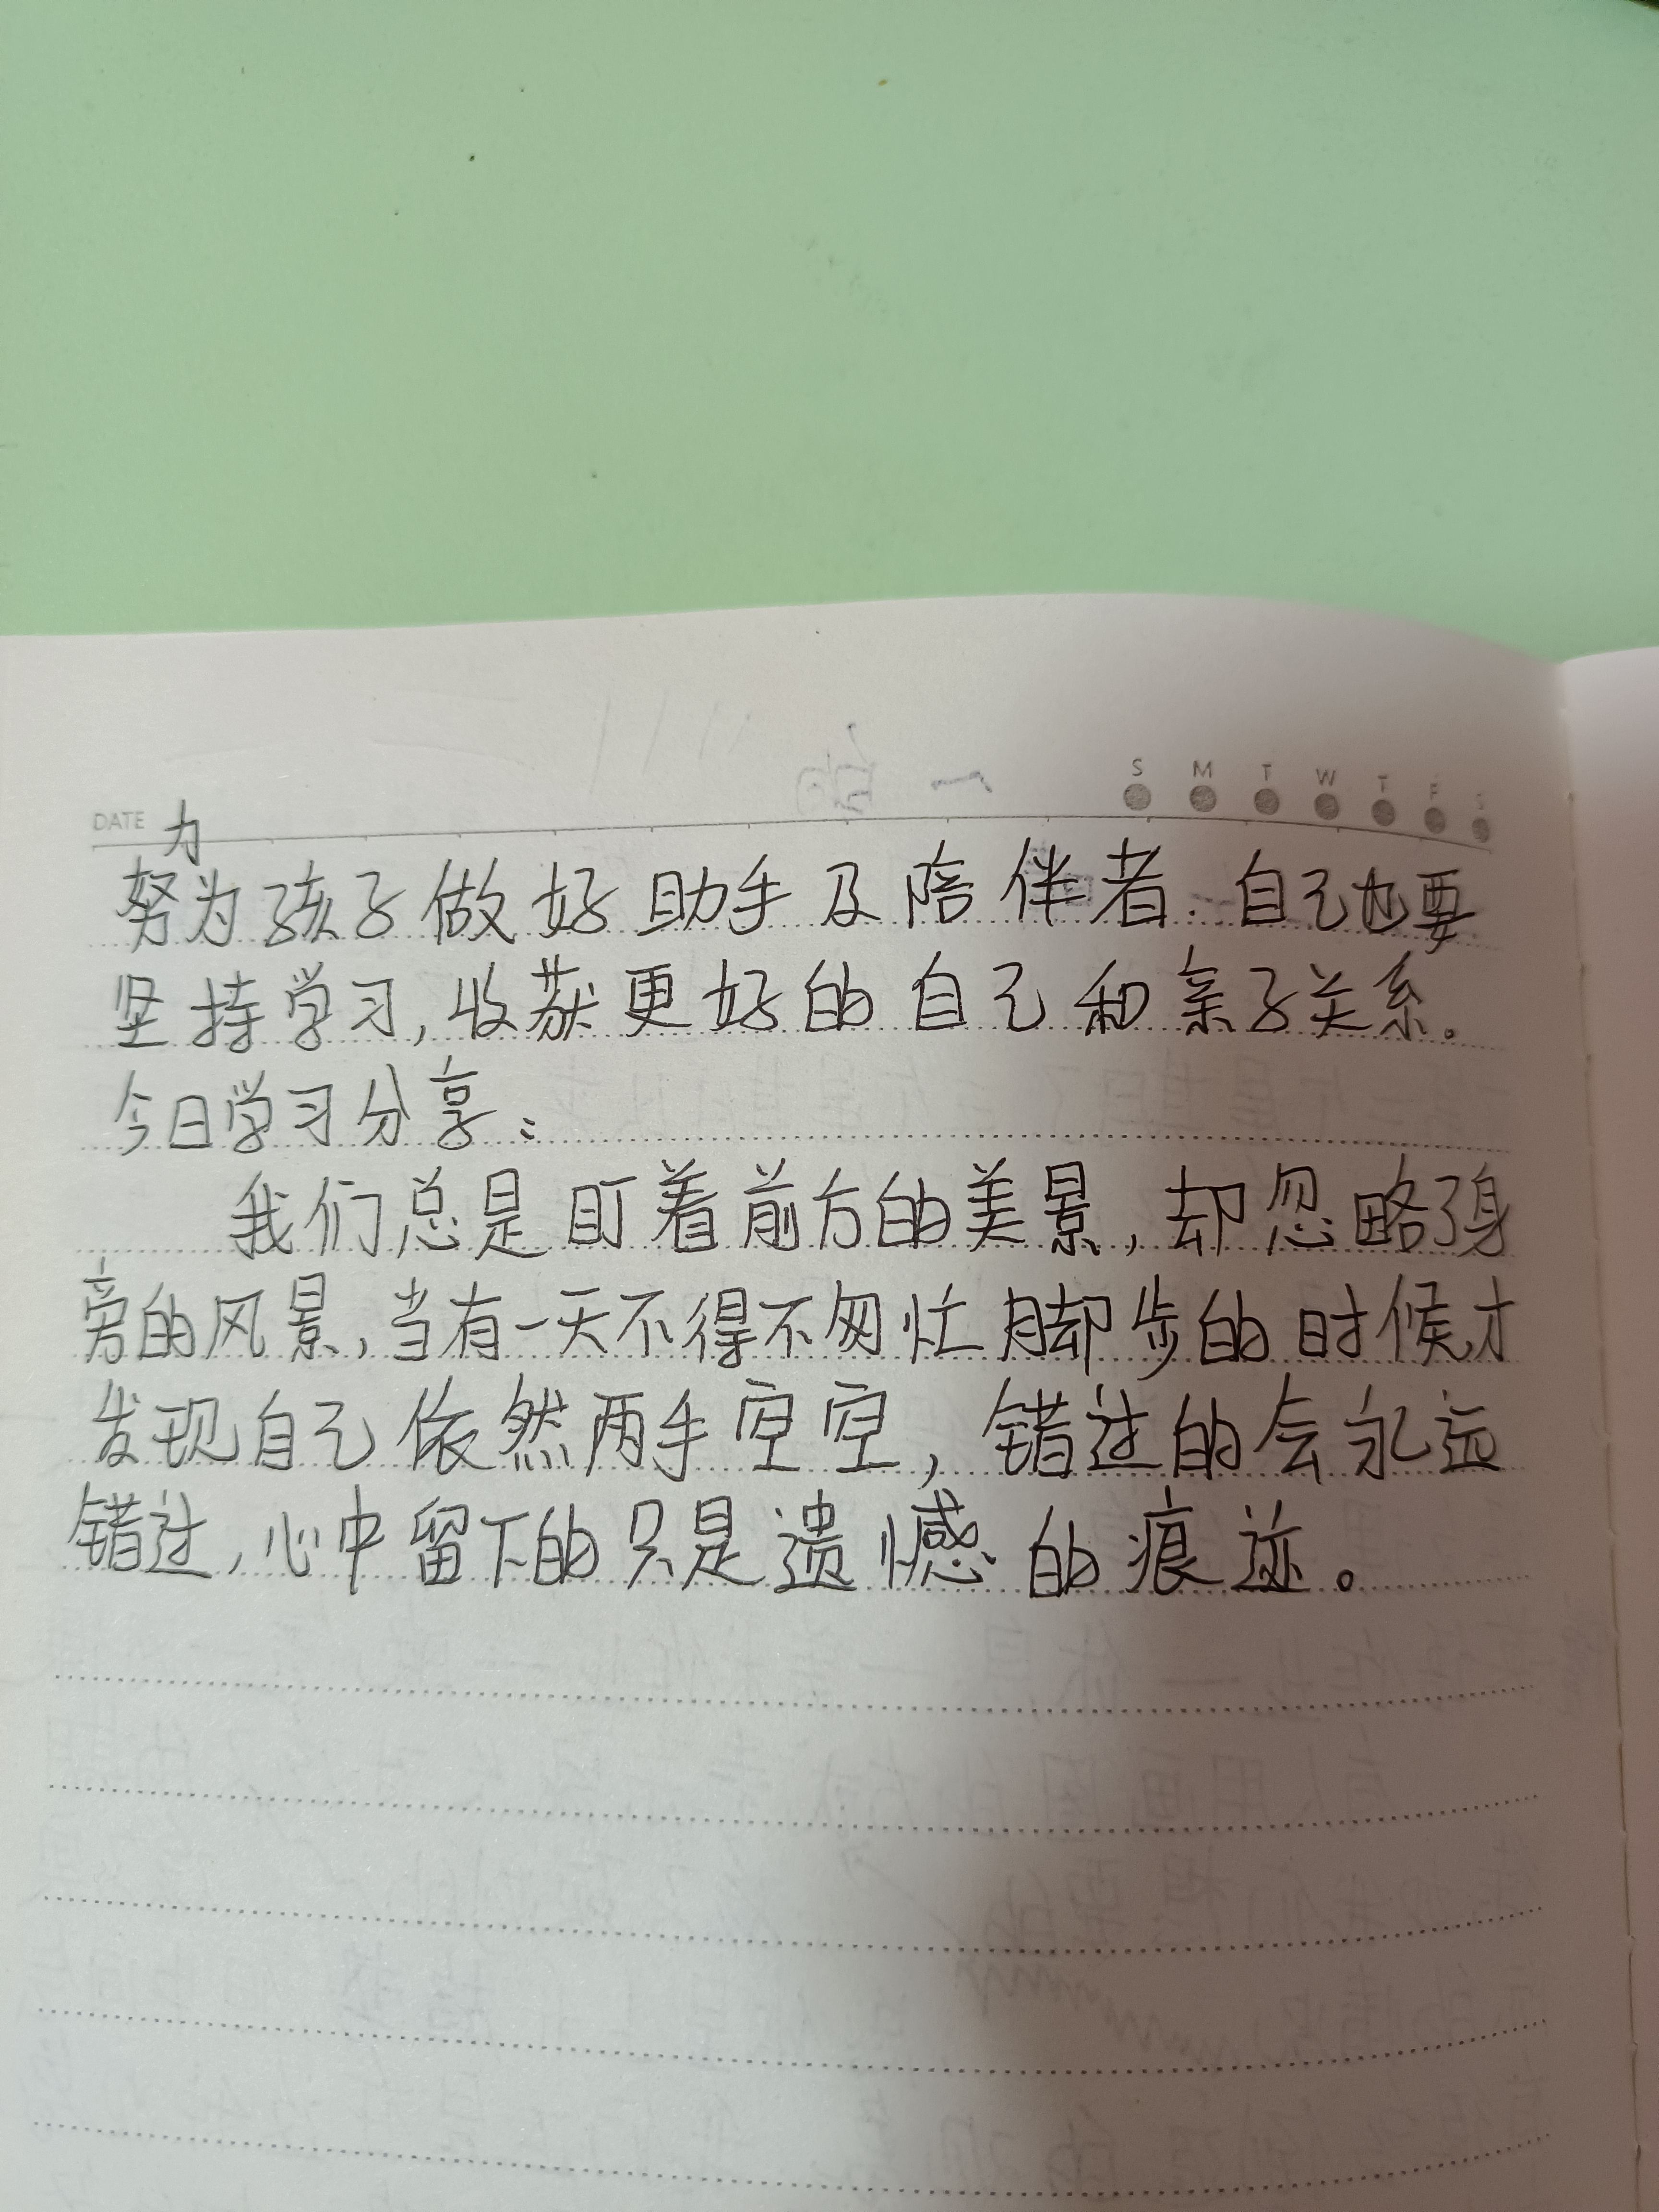 S M T W T F S
DATE
力
努为孩子做好助手及陪伴者.自己也要
坚持学习,收获更好的自己和亲子关系。
今日学习分享:
我们总是盯着前方的美景,却忽略了身
旁的风景,当有一天不得不匆忙脚步的时候才
发现自己依然两手空空,错过的会永远
错过,心中留下的只是遗憾的痕迹。